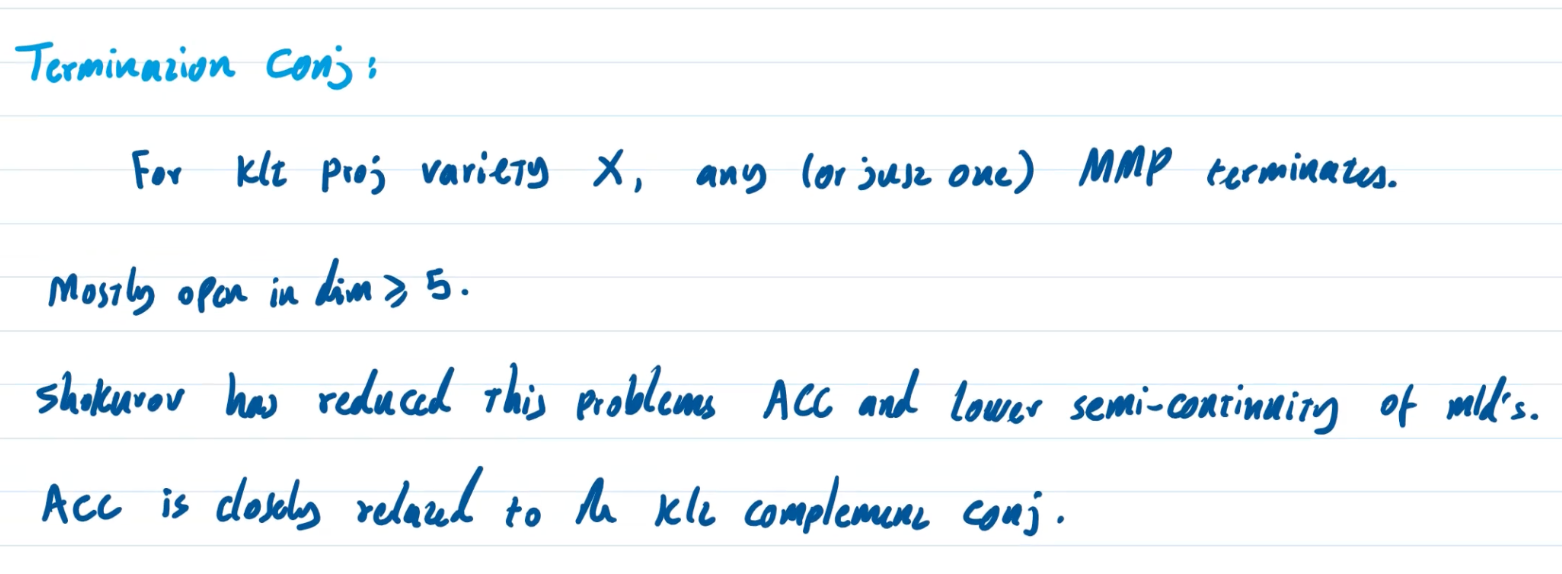 Termination Conj:
For klt proj variety X, any (or just one) MMP terminates.
Mostly open in dim ⩾ 5.
Shokurov has reduced this problems ACC and lower semi-continuity of mld's.
ACC is closely related to the klt complement conj.